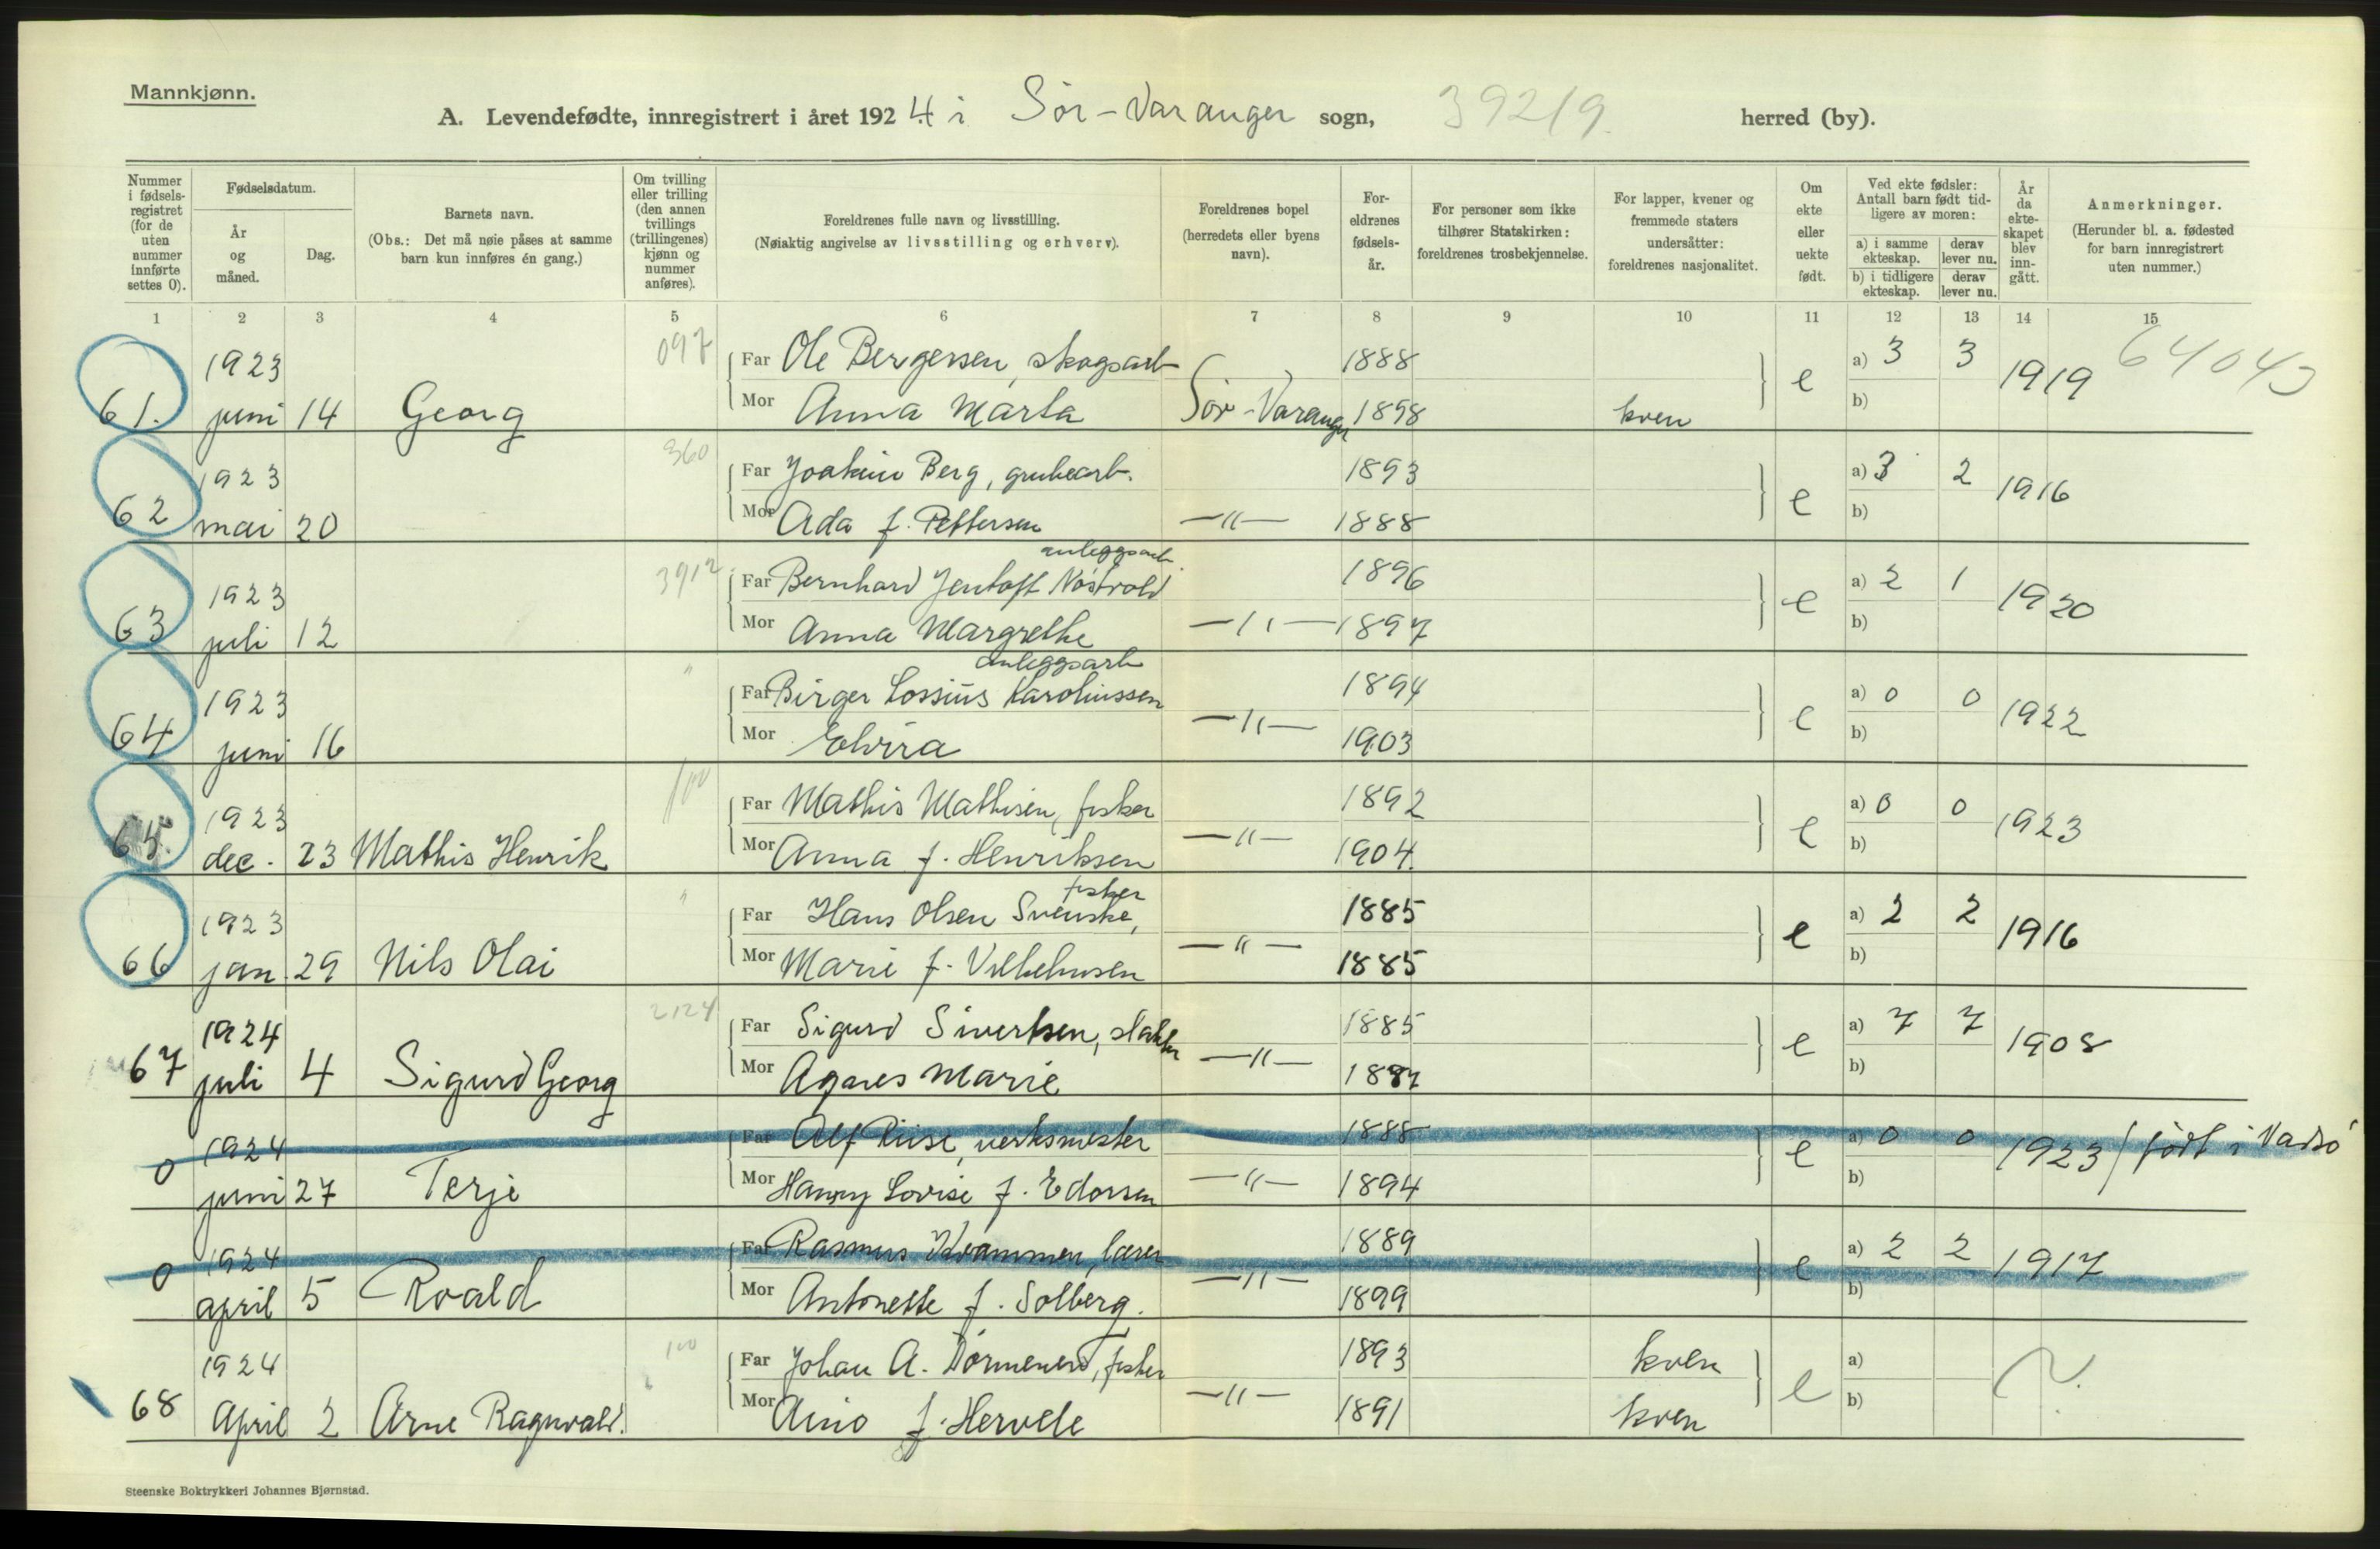 Mannkjønn.
A. Levendefødte, innregistrert i året 1924 i Sör-Varanger sogn, 39219. herred (by).
Nummer i fødselsregistret (for de uten nummer innførte settes 0).
Fødselsdatum.
År og måned.
Dag.
Barnets navn.
(Obs.: Det må nøie påses at samme barn kun innføres én gang.)
Om tvilling eller trilling (den annen tvillings (trillingenes) kjønn og nummer anføres).
Foreldrenes fulle navn og livsstilling.
(Nøiaktig angivelse av livsstilling og erhverv).
Foreldrenes bopel (herredets eller byens navn).
Foreldrenes fødselsår.
For personer som ikke tilhører Statskirken: foreldrenes trosbekjennelse.
For lapper, kvener og fremmede staters undersåtter: foreldrenes nasjonalitet.
Om ekte eller uekte født.
Ved ekte fødsler: Antall barn født tidligere av moren:
a) i samme ekteskap. derav lever nu.
b) i tidligere ekteskap. derav lever nu.
År da ekteskapet blev inngått.
Anmerkninger.
(Herunder bl. a. fødested for barn innregistrert uten nummer.)
1 2 3 4 5 6 7 8 9 10 11 12 13 14 15
1923 097 Far Ole Bergersen, skogsarb 1888 e a) 3 3 1919 64043
61. juni 14 Georg Mor Anna Marta Sör-Varanger 1898 kven b)
1923 360 Far Joakim Berg, grubearb. 1893 e a) 3 2 1916
62 mai 20 Mor Ada f. Pettersen —"— 1888 b)
anleggsarb.
1923 3912 Far Bernhard Jentoft Nöstvold 1896 e a) 2 1 1920
63 juli 12 Mor Anna Margrethe —"— 1897 b)
anleggsarb
1923 " Far Birger Lossius Karoliussen 1894 e a) 0 0 1922
64 juni 16 Mor Elvira —"— 1903 b)
1923 100 Far Mathis Mathisen, fisker 1892 e a) 0 0 1923
65. dec. 23 Mathis Henrik Mor Anna f. Henriksen —"— 1904. b)
fisker
1923 " Far Hans Olsen Svenske, 1885 e a) 2 2 1916
66 jan. 29 Nils Olai Mor Marie f. Vilhelmsen —"— 1885 b)
1924 2124 Far Sigurd Sivertsen, 1885 e a) 7 7 1908
67 juli 4 Sigurd Georg Mor Agnes Marie —"— 1887 b)
1924 Far Alf Riise, verksmester 1888 e a) 0 0 1923 / född i Vadsö
0 juni 27 Terje Mor Hanny Lovise f. Edorsen —"— 1894 b)
1924 Far Rasmus Kvammen, lærer 1889 e a) 2 2 1917
0 april 5 Roald Mor Antonette f. Solberg. —"— 1899 b)
1924 100 Far Johan A. fisker 1893 kven e a) ?
68 April 2 Arne Ragnvald. Mor Aino f. Hervele —"— 1891 kven b)
Steenske Boktrykkeri Johannes Bjørnstad.